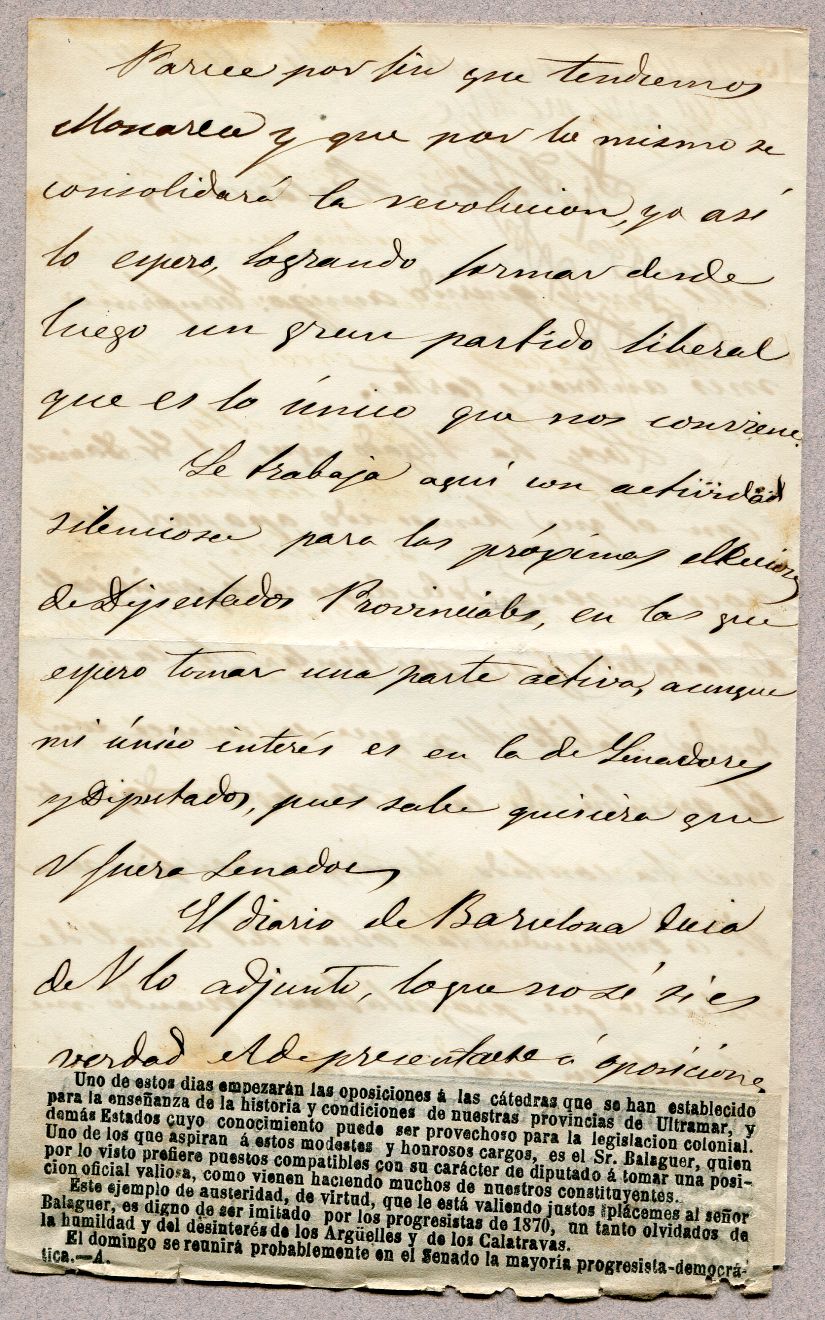 Parece por fin que tendremos
Monarca y que por lo mismo se
consolidará la revolucion, yo así
lo espero, logrando formar desde
luego un gran partido liberal
que es lo único que nos conviene.
Se trabaja aquí con actividad
silenciosa para las próximas elecciones
de Diputados Provinciales, en las que
espero tomar una parte activa, aunque
mi único interés es en la de Senadores
y Diputados, pues sabe quisiera que
V fuera Senador
El diario de Barcelona decia
de V lo adjunto, lo que no sé si es
verdad el de presentarse á oposicione
Uno de estos dias empezarán las oposiciones á las cátedras que se han establecido
para la enseñanza de la historia y condiciones de nuestras provincias de Ultramar, y
demás Estados cuyo conocimiento puede ser provechoso para la legislacion colonial.
Uno de los que aspiran á estos modestos y honrosos cargos, es el Sr. Balaguer, quien
por lo visto prefiere puestos compatibles con su carácter de diputado á tomar una posi-
cion oficial valiosa, como vienen haciendo muchos de nuestros constituyentes.
Este ejemplo de austeridad, de virtud, que le está valiendo justos plácemes al señor
Balaguer, es digno de ser imitado por los progresistas de 1870, un tanto olvidados de
la humildad y del desinterés de los Argüelles y de los Calatravas.
El domingo se reunirá probablemente en el Senado la mayoría progresista-democrá-
tica.—A.